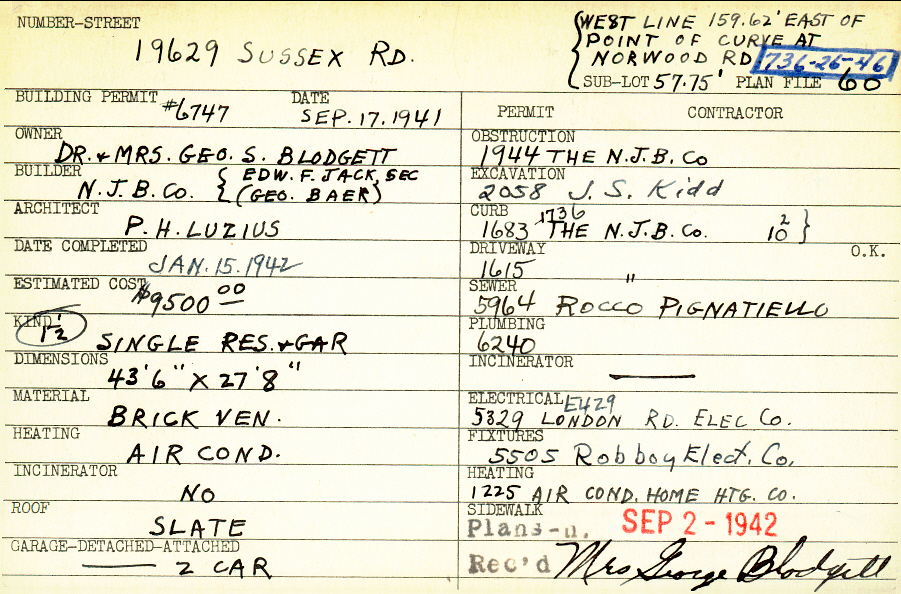 NUMBER-STREET
19629 SUSSEX RD.
WEST LINE 159.62' EAST OF
POINT OF CURVE AT
NORWOOD RD
736-26-46
SUB-LOT 57.75' PLAN FILE 60
BUILDING PERMIT #6747 DATE SEP. 17. 1941
OWNER
DR. & MRS. GEO. S. BLODGETT
BUILDER
N.J.B. Co. { EDW. F. JACK, SEC
(GEO. BAER)
ARCHITECT
P. H. LUZIUS
DATE COMPLETED
JAN. 15. 1942
ESTIMATED COST
$9500 00
KIND
1 1/2 SINGLE RES. & GAR
DIMENSIONS
43'6" X 27'8"
MATERIAL
BRICK VEN.
HEATING
AIR COND.
INCINERATOR
NO
ROOF
SLATE
GARAGE-DETACHED-ATTACHED
2 CAR
PERMIT CONTRACTOR
OBSTRUCTION
1944 THE N.J.B. Co
EXCAVATION
2058 J. S. Kidd
CURB 1736
1683 THE N.J.B. Co. 10 2 }
DRIVEWAY O.K.
1615 "
SEWER
5964 ROCCO PIGNATIELLO
PLUMBING
6240
INCINERATOR
ELECTRICAL E429
5329 LONDON RD. ELEC Co.
FIXTURES
5505 Robboy Elect. Co.
HEATING
1225 AIR COND. HOME HTG. CO.
SIDEWALK
Plans-n. SEP 2-1942
Rec'd Mrs George Blodgett